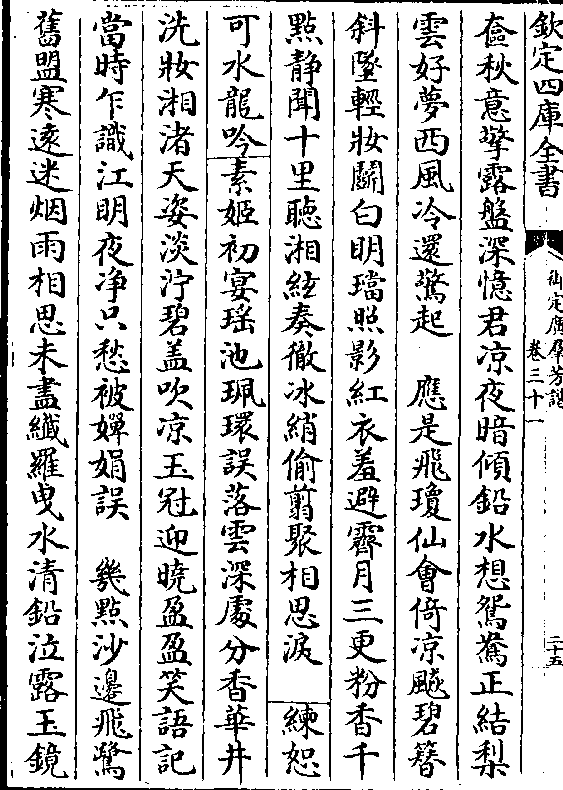 欽定四庫全書
御定廣羣芳譜
卷三十一
二十五
奩秋意擎露盤深憶君凉夜暗傾鉛水想鴛鴦正結梨
雲好夢西風冷還驚起　應是飛瓊仙會倚凉飈碧簪
斜墜輕妝鬭白明璫照影紅衣羞避霽月三更粉香千
點静聞十里聽湘絃奏徹冰綃偷翦聚相思淚　練恕
可水龍吟素姬初宴瑶池珮環誤落雲深處分香華井
洗妝湘渚天姿淡泞碧盖吹凉玉冠迎曉盈盈笑語記
當時乍識江明夜净只愁被嬋娟誤　幾點沙邊飛鷺
舊盟寒遠迷烟雨相思未盡纖羅曳水清鉛泣露玉鏡